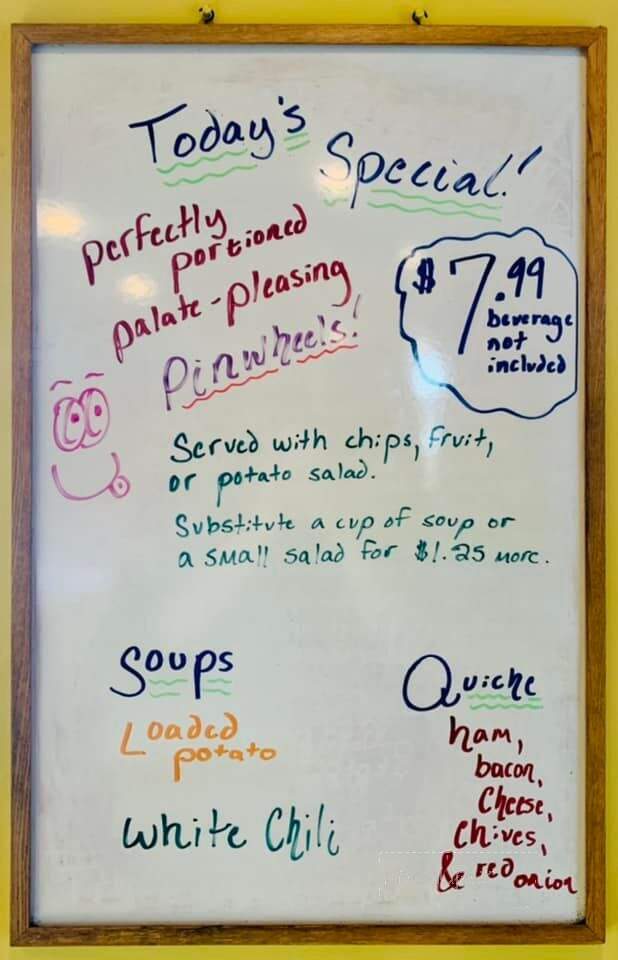 Today's
Special!
perfectly
portioned
palate-pleasing
Pinwheels!
$7.99
beverage
not
included
Served with chips, fruit,
or potato salad.
Substitute a cup of soup or
a small salad for $1.25 more.
Soups
Loaded
potato
White Chili
Quiche
ham,
bacon,
Cheese,
Chives,
& red onion